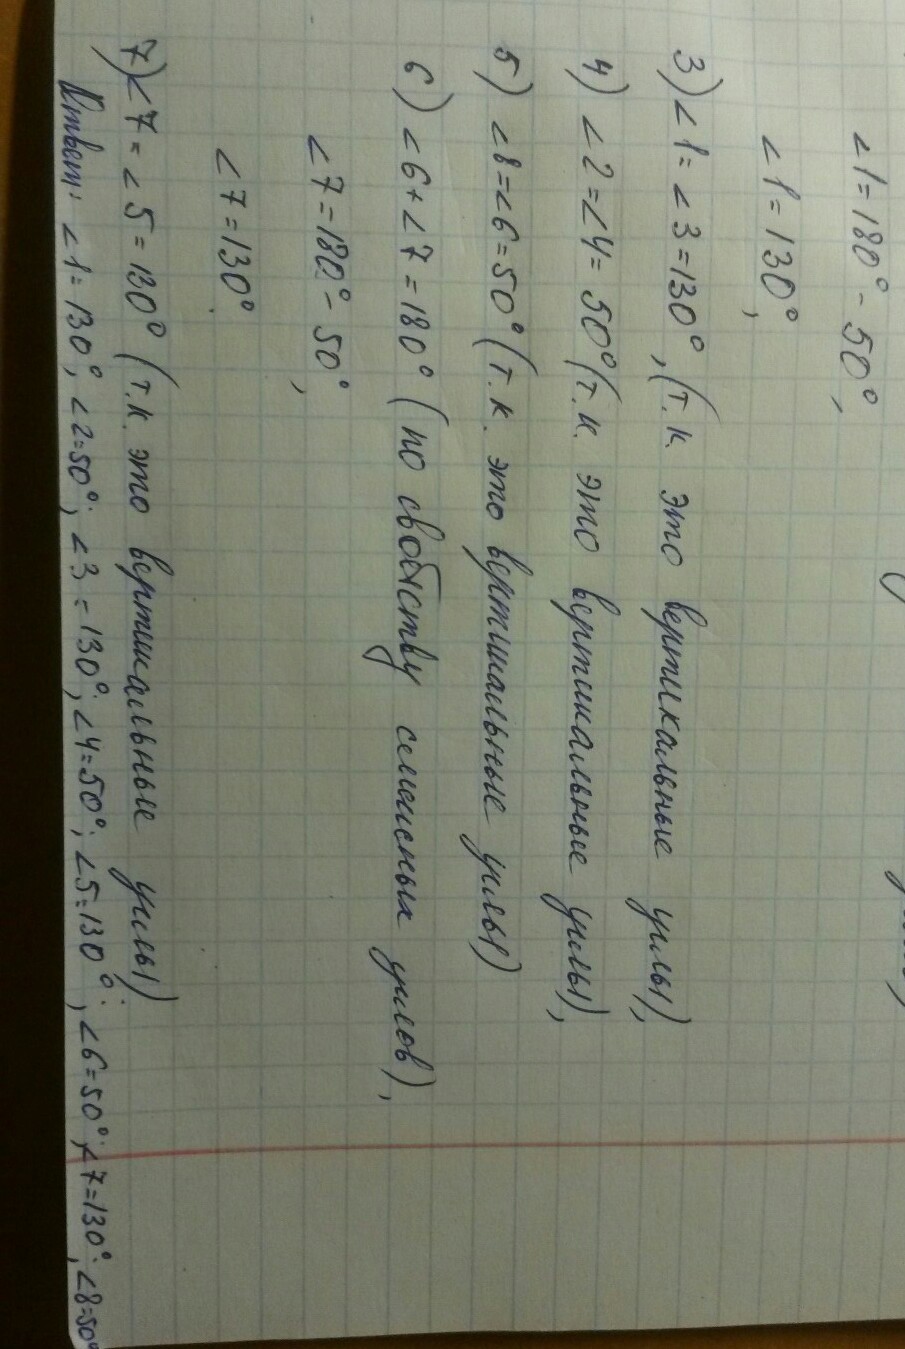 ∠1=180°-50°,
∠1=130°,
3) ∠1=∠3=130°, (т.к. это вертикальные углы),
4) ∠2=∠4=50° (т.к. это вертикальные углы),
5) ∠8=∠6=50° (т.к. это вертикальные углы)
6) ∠6+∠7=180° (по свойству смежных углов),
∠7=180°-50°,
∠7=130°.
7) ∠7=∠5=130° (т.к. это вертикальные углы)
Ответ: ∠1=130°; ∠2=50°; ∠3=130°; ∠4=50°; ∠5=130°; ∠6=50°; ∠7=130°; ∠8=50°